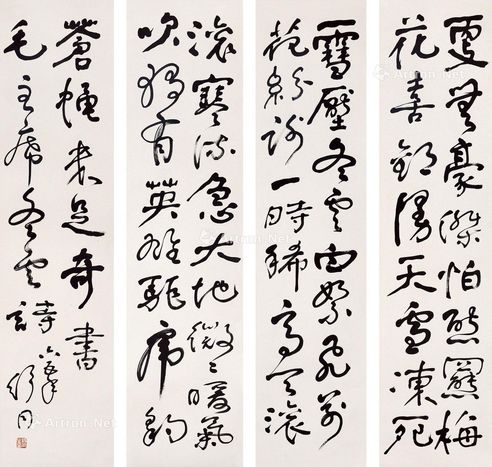 更無豪傑怕熊羆梅
花喜歡漫天雪凍死
雪壓冬雲白絮飛萬
花紛謝一時稀高天滾
滾寒流急大地微微暖氣
吹獨有英雄驅虎豹
蒼蠅未足奇 書
毛主席冬雲詩
舒同
Artron.Net
Artron.Net
Artron.Net